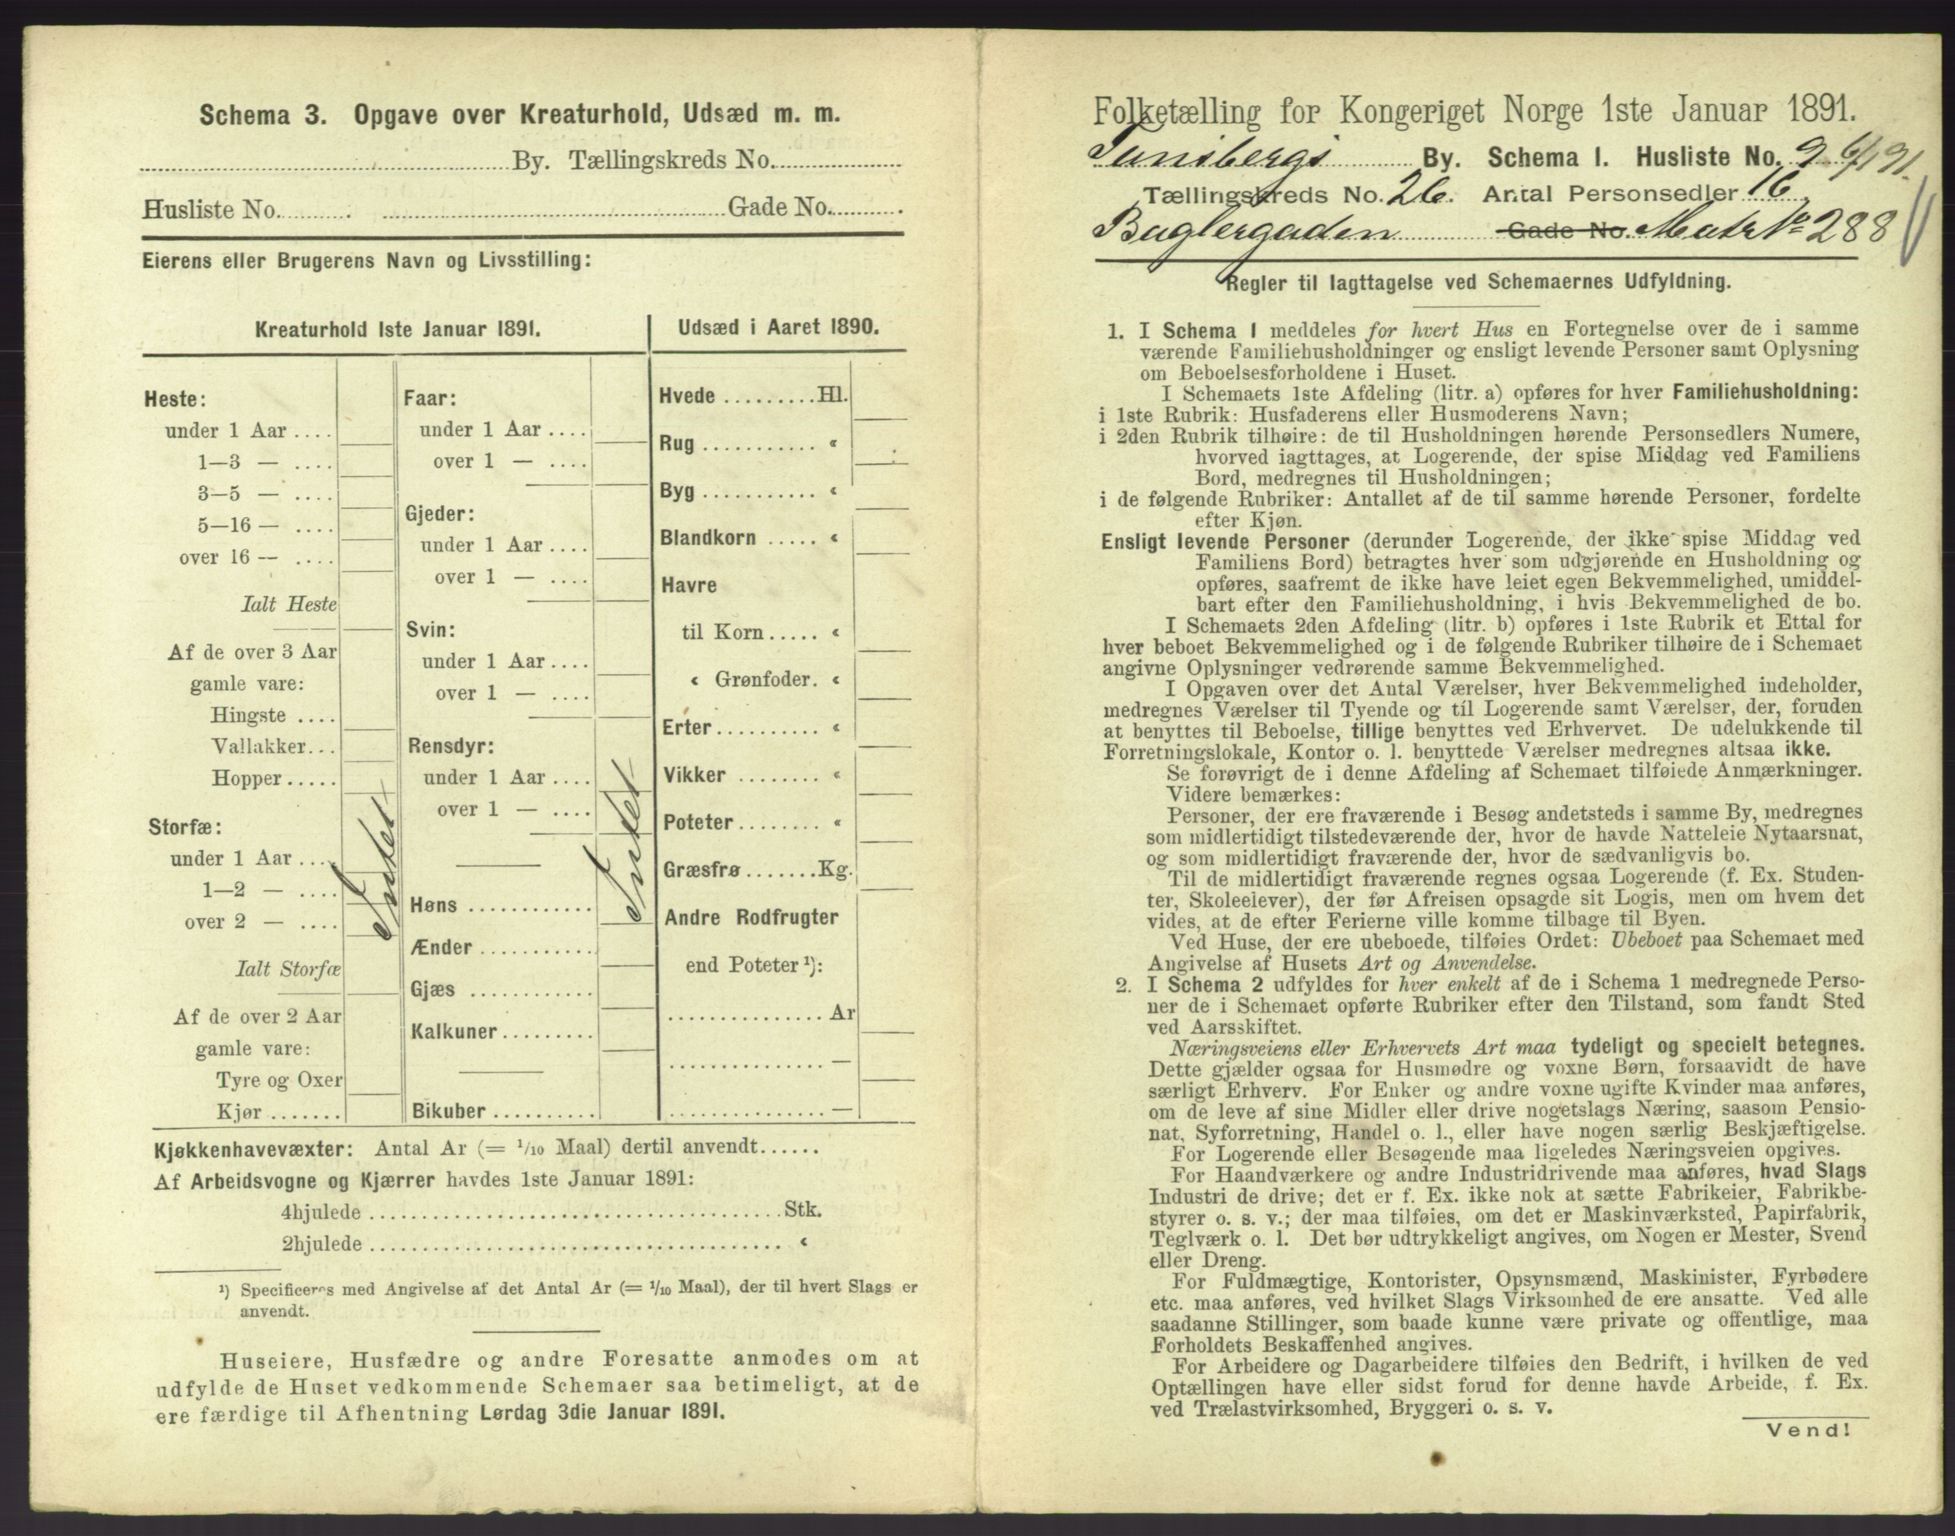 Schema 3. Opgave over Kreaturhold, Udsæd m. m.
By. Tællingskreds No.
Husliste No. Gade No.
Eierens eller Brugerens Navn og Livsstilling:
Kreaturhold 1ste Januar 1891.
Heste:
under 1 Aar ....
1—3 — ....
3—5 — ....
5—16 — ....
over 16 — ....
Ialt Heste
Af de over 3 Aar
gamle vare:
Hingste ....
Vallakker...
Hopper .....
Storfæ:
under 1 Aar ....
1—2 — ....
over 2 — ....
Ialt Storfæ
Af de over 2 Aar
gamle vare:
Tyre og Oxer
Kjør .......
Intet
Faar:
under 1 Aar ....
over 1 — ....
Gjeder:
under 1 Aar ....
over 1 — ....
Svin:
under 1 Aar ....
over 1 — ....
Rensdyr:
under 1 Aar ....
over 1 — ....
Høns ............
Ænder ...........
Gjæs ............
Kalkuner .........
Bikuber ..........
Intet
Udsæd i Aaret 1890.
Hvede .........Hl.
Rug ........... «
Byg ........... «
Blandkorn ..... «
Havre
til Korn ..... «
« Grønfoder. «
Erter .......... «
Vikker ........ «
Poteter ........ «
Græsfrø .......Kg.
Andre Rodfrugter
end Poteter ¹):
............... Ar
............... —
............... —
Kjøkkenhavevæxter: Antal Ar (= 1/10 Maal) dertil anvendt......
Af Arbeidsvogne og Kjærrer havdes 1ste Januar 1891:
4hjulede ........................................Stk.
2hjulede ........................................ «
¹) Specificeres med Angivelse af det Antal Ar (= 1/10 Maal), der til hvert Slags er
anvendt.
Huseiere, Husfædre og andre Foresatte anmodes om at
udfylde de Huset vedkommende Schemaer saa betimeligt, at de
ere færdige til Afhentning Lørdag 3die Januar 1891.
Folketælling for Kongeriget Norge 1ste Januar 1891.
Tunsbergs By. Schema 1. Husliste No. 9 6/1 91.
Tællingskreds No. 26. Antal Personsedler 16.
Baglergaden Gade No. Matr No 288
Regler til Iagttagelse ved Schemaernes Udfyldning.
1. I Schema 1 meddeles for hvert Hus en Fortegnelse over de i samme
værende Familiehusholdninger og ensligt levende Personer samt Oplysning
om Beboelsesforholdene i Huset.
I Schemaets 1ste Afdeling (litr. a) opføres for hver Familiehusholdning:
i 1ste Rubrik: Husfaderens eller Husmoderens Navn;
i 2den Rubrik tilhøire: de til Husholdningen hørende Personsedlers Numere,
hvorved iagttages, at Logerende, der spise Middag ved Familiens
Bord, medregnes til Husholdningen;
i de følgende Rubriker: Antallet af de til samme hørende Personer, fordelte
efter Kjøn.
Ensligt levende Personer (derunder Logerende, der ikke spise Middag ved
Familiens Bord) betragtes hver som udgjørende en Husholdning og
opføres, saafremt de ikke have leiet egen Bekvemmelighed, umiddel-
bart efter den Familiehusholdning, i hvis Bekvemmelighed de bo.
I Schemaets 2den Afdeling (litr. b) opføres i 1ste Rubrik et Ettal for
hver beboet Bekvemmelighed og i de følgende Rubriker tilhøire de i Schemaet
angivne Oplysninger vedrørende samme Bekvemmelighed.
I Opgaven over det Antal Værelser, hver Bekvemmelighed indeholder,
medregnes Værelser til Tyende og til Logerende samt Værelser, der, foruden
at benyttes til Beboelse, tillige benyttes ved Erhvervet. De udelukkende til
Forretningslokale, Kontor o. l. benyttede Værelser medregnes altsaa ikke.
Se forøvrigt de i denne Afdeling af Schemaet tilføiede Anmærkninger.
Videre bemærkes:
Personer, der ere fraværende i Besøg andetsteds i samme By, medregnes
som midlertidigt tilstedeværende der, hvor de havde Natteleie Nytaarsnat,
og som midlertidigt fraværende der, hvor de sædvanligvis bo.
Til de midlertidigt fraværende regnes ogsaa Logerende (f. Ex. Studen-
ter, Skoleelever), der før Afreisen opsagde sit Logis, men om hvem det
vides, at de efter Ferierne ville komme tilbage til Byen.
Ved Huse, der ere ubeboede, tilføies Ordet: Ubeboet paa Schemaet med
Angivelse af Husets Art og Anvendelse.
2. I Schema 2 udfyldes for hver enkelt af de i Schema 1 medregnede Perso-
ner de i Schemaet opførte Rubriker efter den Tilstand, som fandt Sted
ved Aarsskiftet.
Næringsveiens eller Erhvervets Art maa tydeligt og specielt betegnes.
Dette gjælder ogsaa for Husmødre og voxne Børn, forsaavidt de have
særligt Erhverv. For Enker og andre voxne ugifte Kvinder maa anføres,
om de leve af sine Midler eller drive nogetslags Næring, saasom Pensio-
nat, Syforretning, Handel o. l., eller have nogen særlig Beskjæftigelse.
For Logerende eller Besøgende maa ligeledes Næringsveien opgives.
For Haandværkere og andre Industridrivende maa anføres, hvad Slags
Industri de drive; det er f. Ex. ikke nok at sætte Fabrikeier, Fabrikbe-
styrer o. s. v.; der maa tilføies, om det er Maskinværksted, Papirfabrik,
Teglværk o. l. Det bør udtrykkeligt angives, om Nogen er Mester, Svend
eller Dreng.
For Fuldmægtige, Kontorister, Opsynsmænd, Maskinister, Fyrbødere
etc. maa anføres, ved hvilket Slags Virksomhed de ere ansatte. Ved alle
saadanne Stillinger, som baade kunne være private og offentlige, maa
Forholdets Beskaffenhed angives.
For Arbeidere og Dagarbeidere tilføies den Bedrift, i hvilken de ved
Optællingen have eller sidst forud for denne havde Arbeide, f. Ex.
ved Trælastvirksomhed, Bryggeri o. s. v.
Vend!